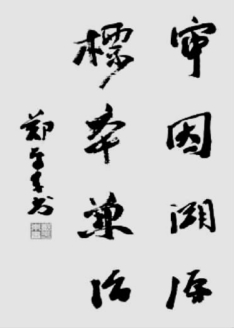 审因溯源
標本兼治
郑书